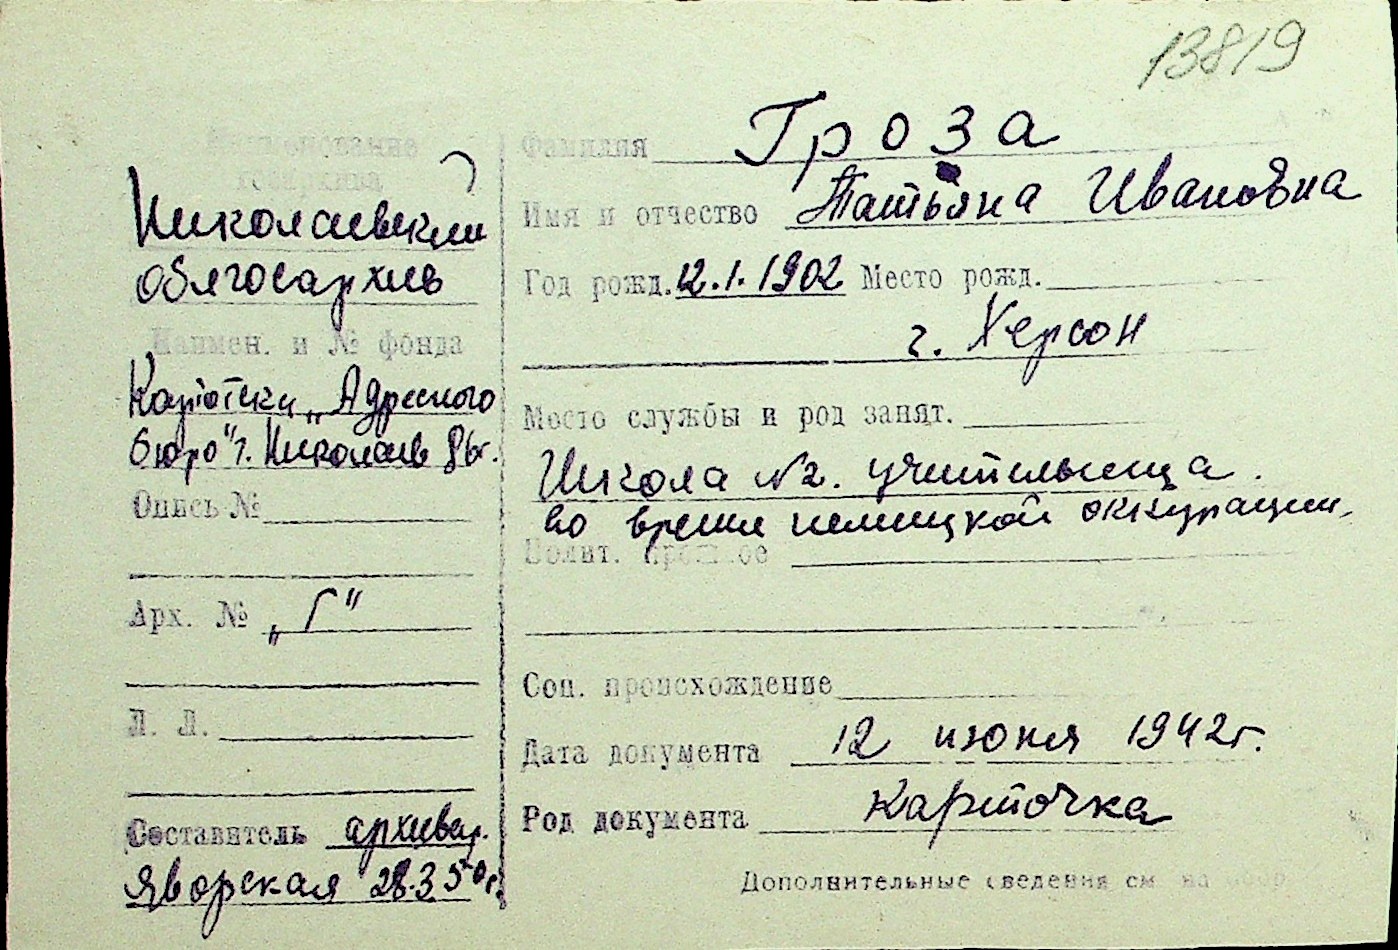 13819
Наименование
госархива
Николаевский
облгосархив
Наимен. и № фонда
Картотеки „Адресного
бюро" г. Николаев
Опись №
Арх. № „Г"
Л. Л.
Составитель архивар.
Яворская 28.3 50г.
Фамилия Гроза
Имя и отчество Татьяна Ивановна
Год рожд. 12.1.1902 Место рожд.
г. Херсон
Место службы и род занят.
Школа №2. учительница.
во время немецкой оккупации.
Полит. прошлое
Соц. происхождение
Дата документа 12 июня 1942г.
Род документа Карточка
Дополнительные сведения см. на обор.